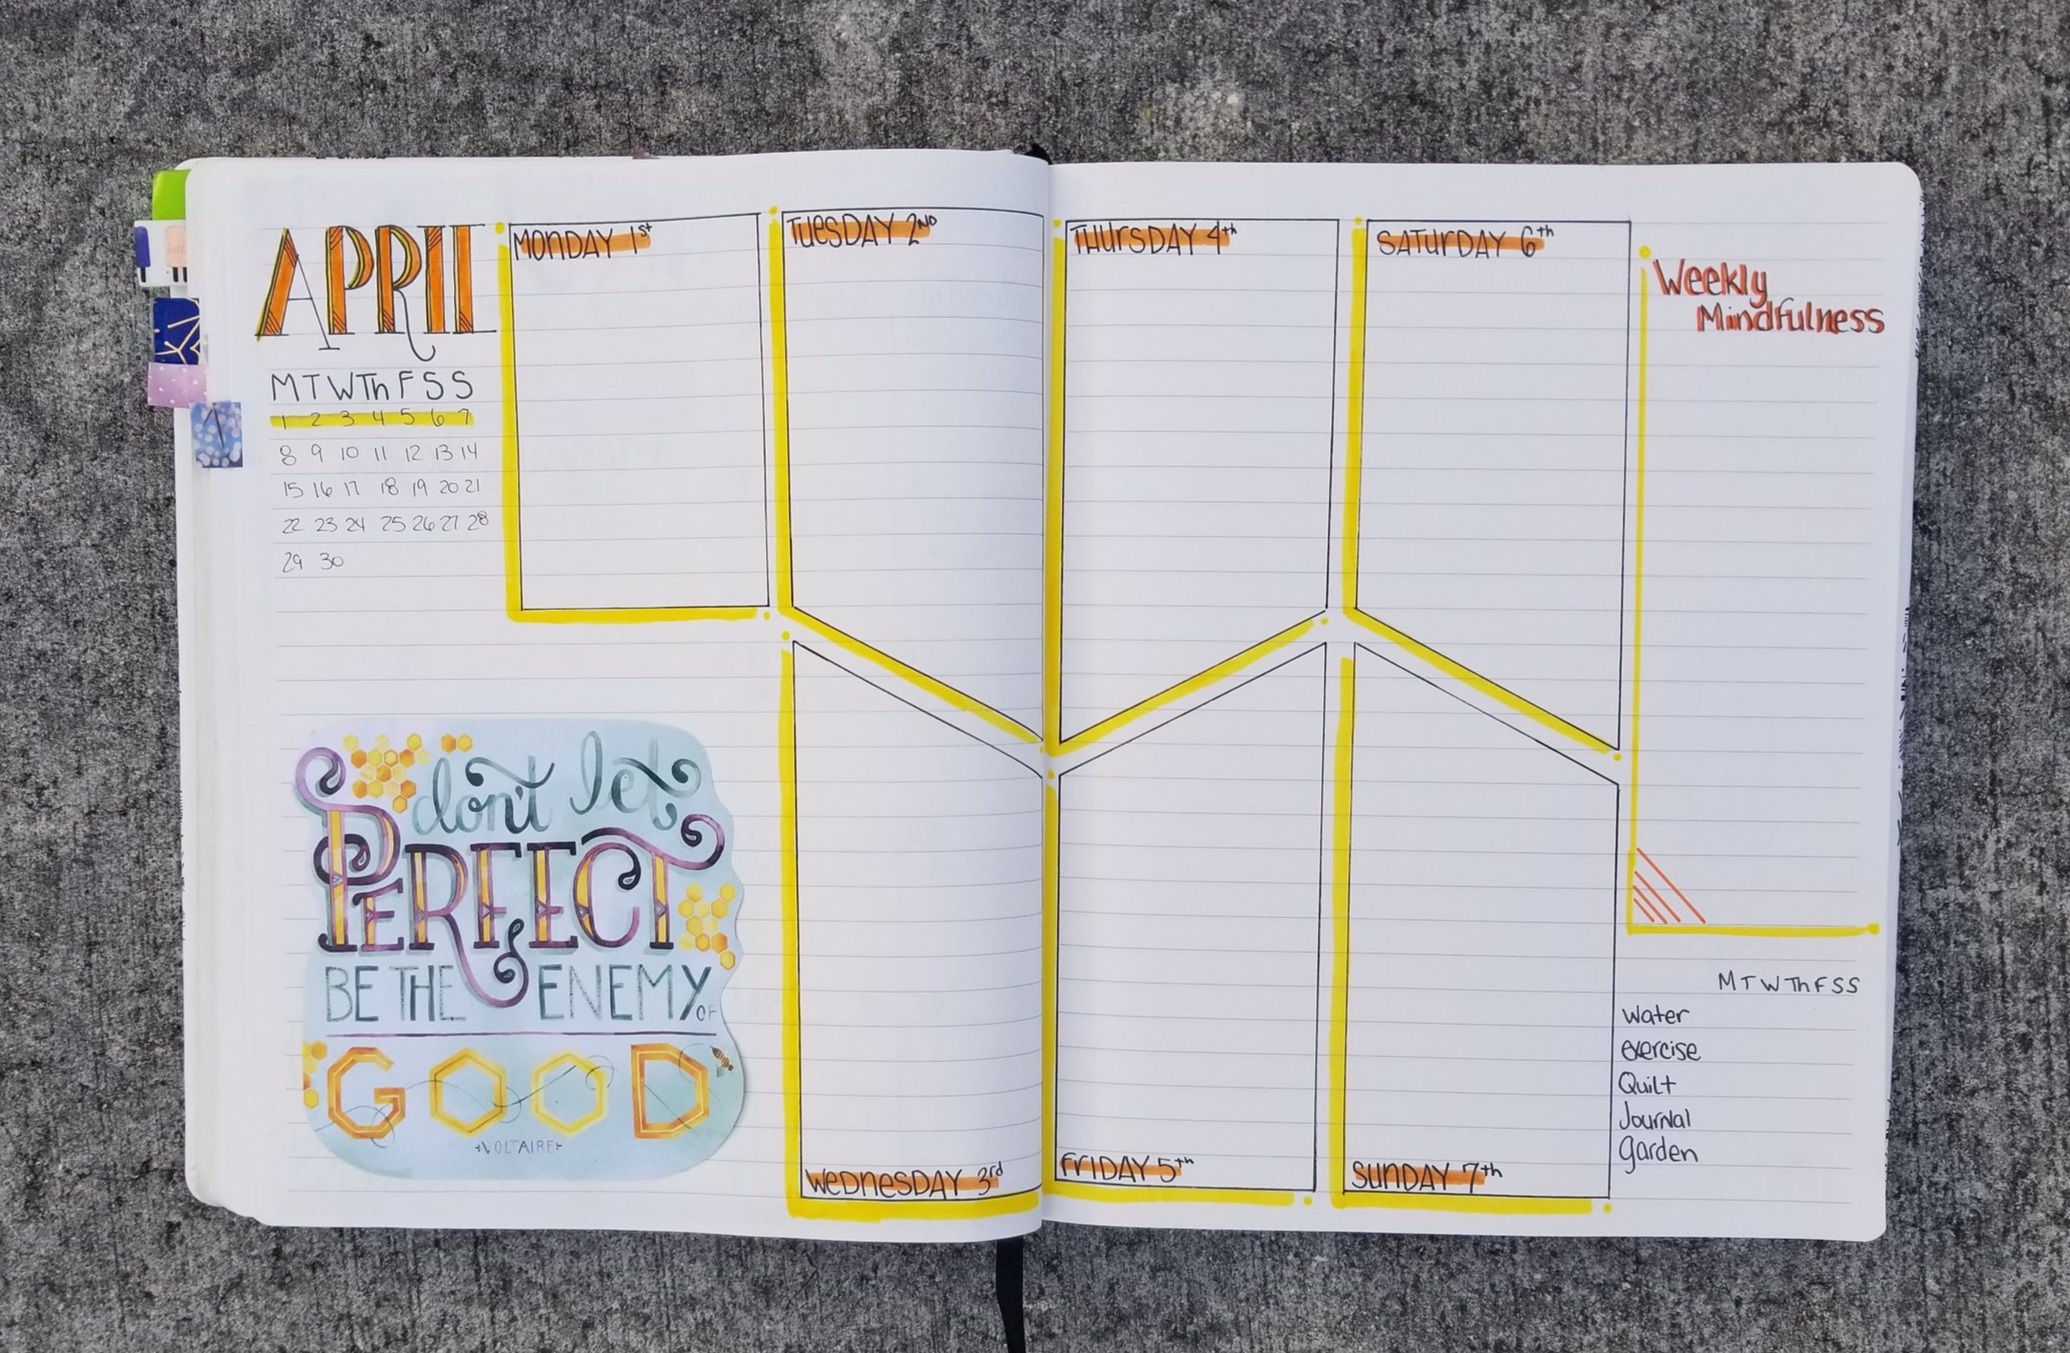 APRIL
M T W Th F S S
1 2 3 4 5 6 7
8 9 10 11 12 13 14
15 16 17 18 19 20 21
22 23 24 25 26 27 28
29 30
don't let
PERFECT
BE THE ENEMY OF
GOOD
VOLTAIRE
MONDAY 1st
TUesDAY 2ND
WeDnesDAY 3rd
THUrsDAY 4th
FrIDAY 5th
SATUrDAY 6th
SUNDAY 7th
Weekly
Mindfulness
M T W Th F S S
Water
exercise
Quilt
Journal
Garden